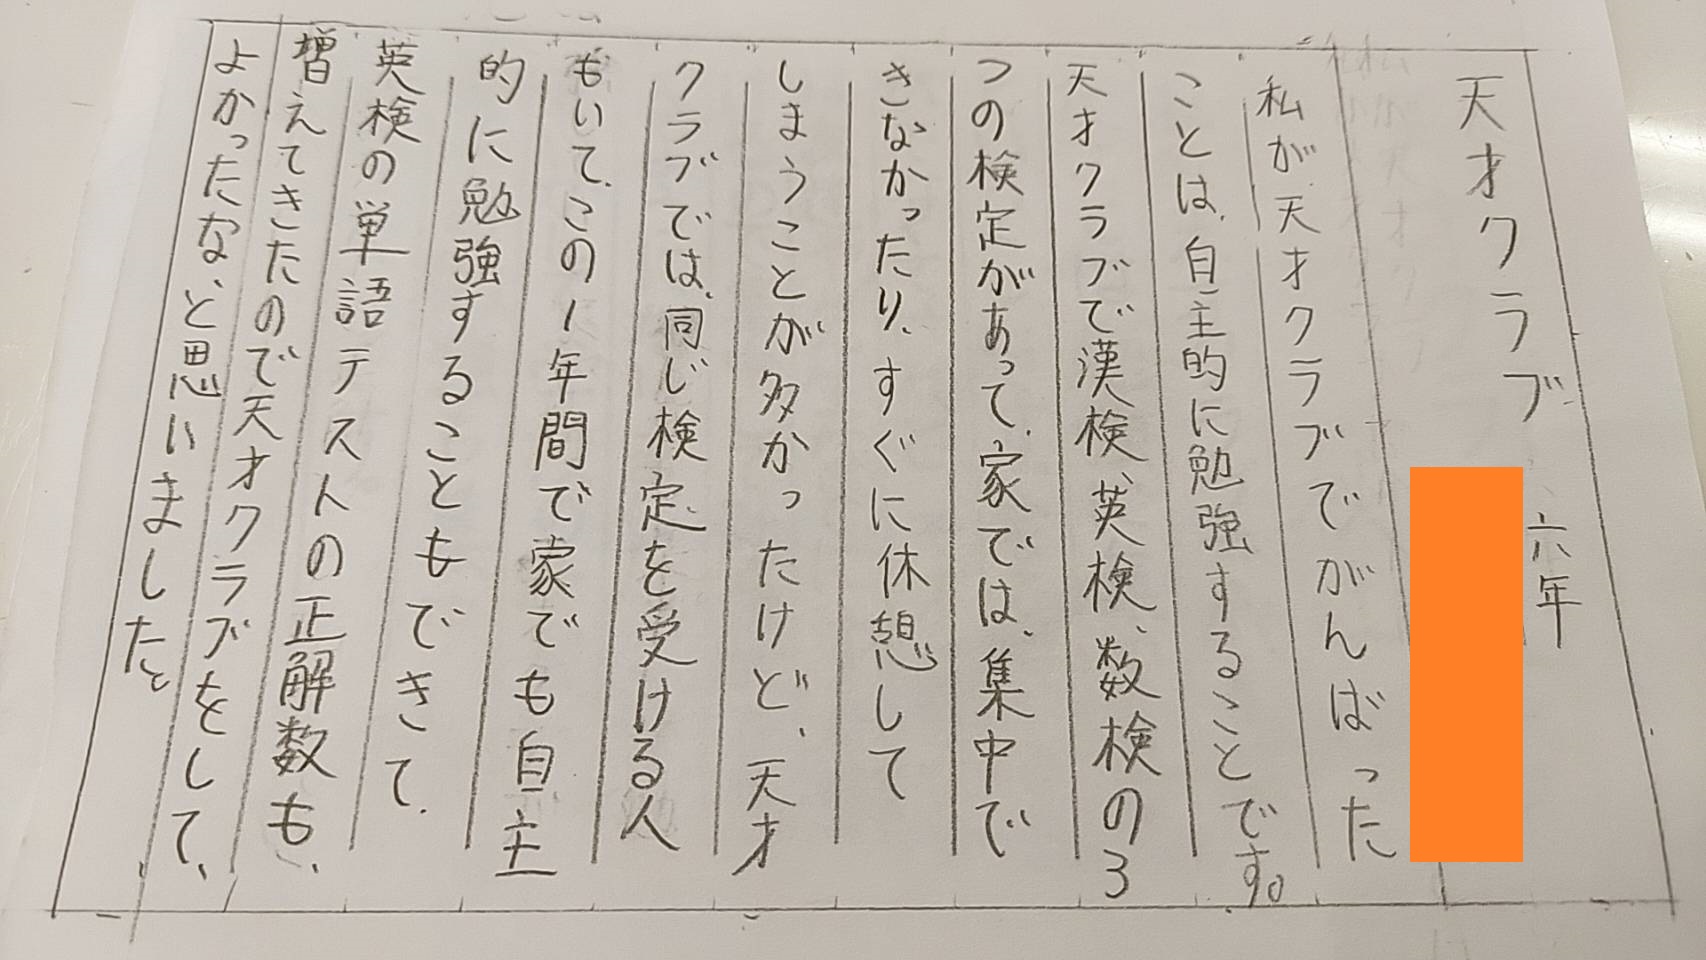 天才クラブ
六年
私が天才クラブでがんばった
ことは、自主的に勉強することです。
天才クラブで漢検、英検、数検の3
つの検定があって、家では、集中で
きなかったり、すぐに休憩して
しまうことが多かったけど、天才
クラブでは、同じ検定を受ける人
もいて、この1年間で家でも自主
的に勉強することもできて、
英検の単語テストの正解数も、
増えてきたので天才クラブをして、
よかったな、と思いました。